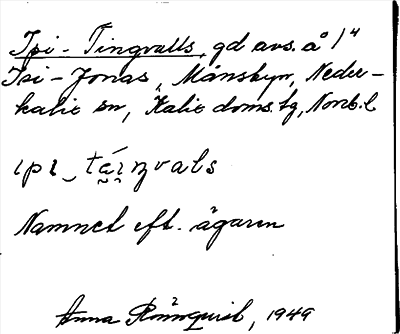 Ipi-Tingvalls, gd avs. å 1/4
Isi-Jonas, Månsbyn, Neder-
kalix sn, Kalix doms.tg, Norrb.l
ɩpɩ ‿ tɑ́ɩŋvɑls
Namnet eft. ägaren
Anna Rönnquist, 1949